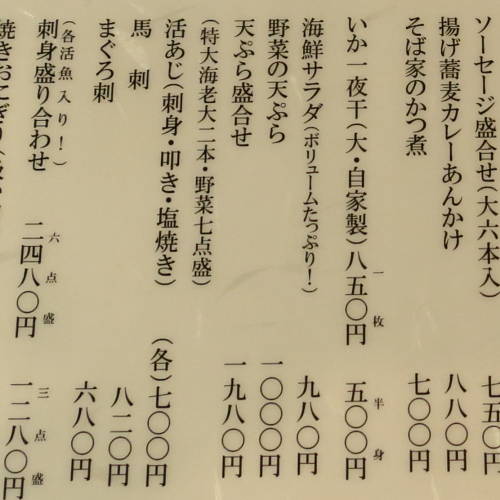 ソーセージ盛合せ(大六本入) 七五〇円
揚げ蕎麦カレーあんかけ 八八〇円
そば家のかつ煮 七〇〇円
いか一夜干(大・自家製) 一枚 八五〇円 半身 五〇〇円
海鮮サラダ(ボリュームたっぷり!) 九八〇円
野菜の天ぷら 一〇〇〇円
天ぷら盛合せ 一九八〇円
(特大海老大二本・野菜七点盛)
活あじ(刺身・叩き・塩焼き) (各)七〇〇円
馬刺 八二〇円
まぐろ刺 六八〇円
刺身盛り合わせ 六点盛 二四八〇円 三点盛 一二八〇円
(各活魚入り!)
焼きおにぎり